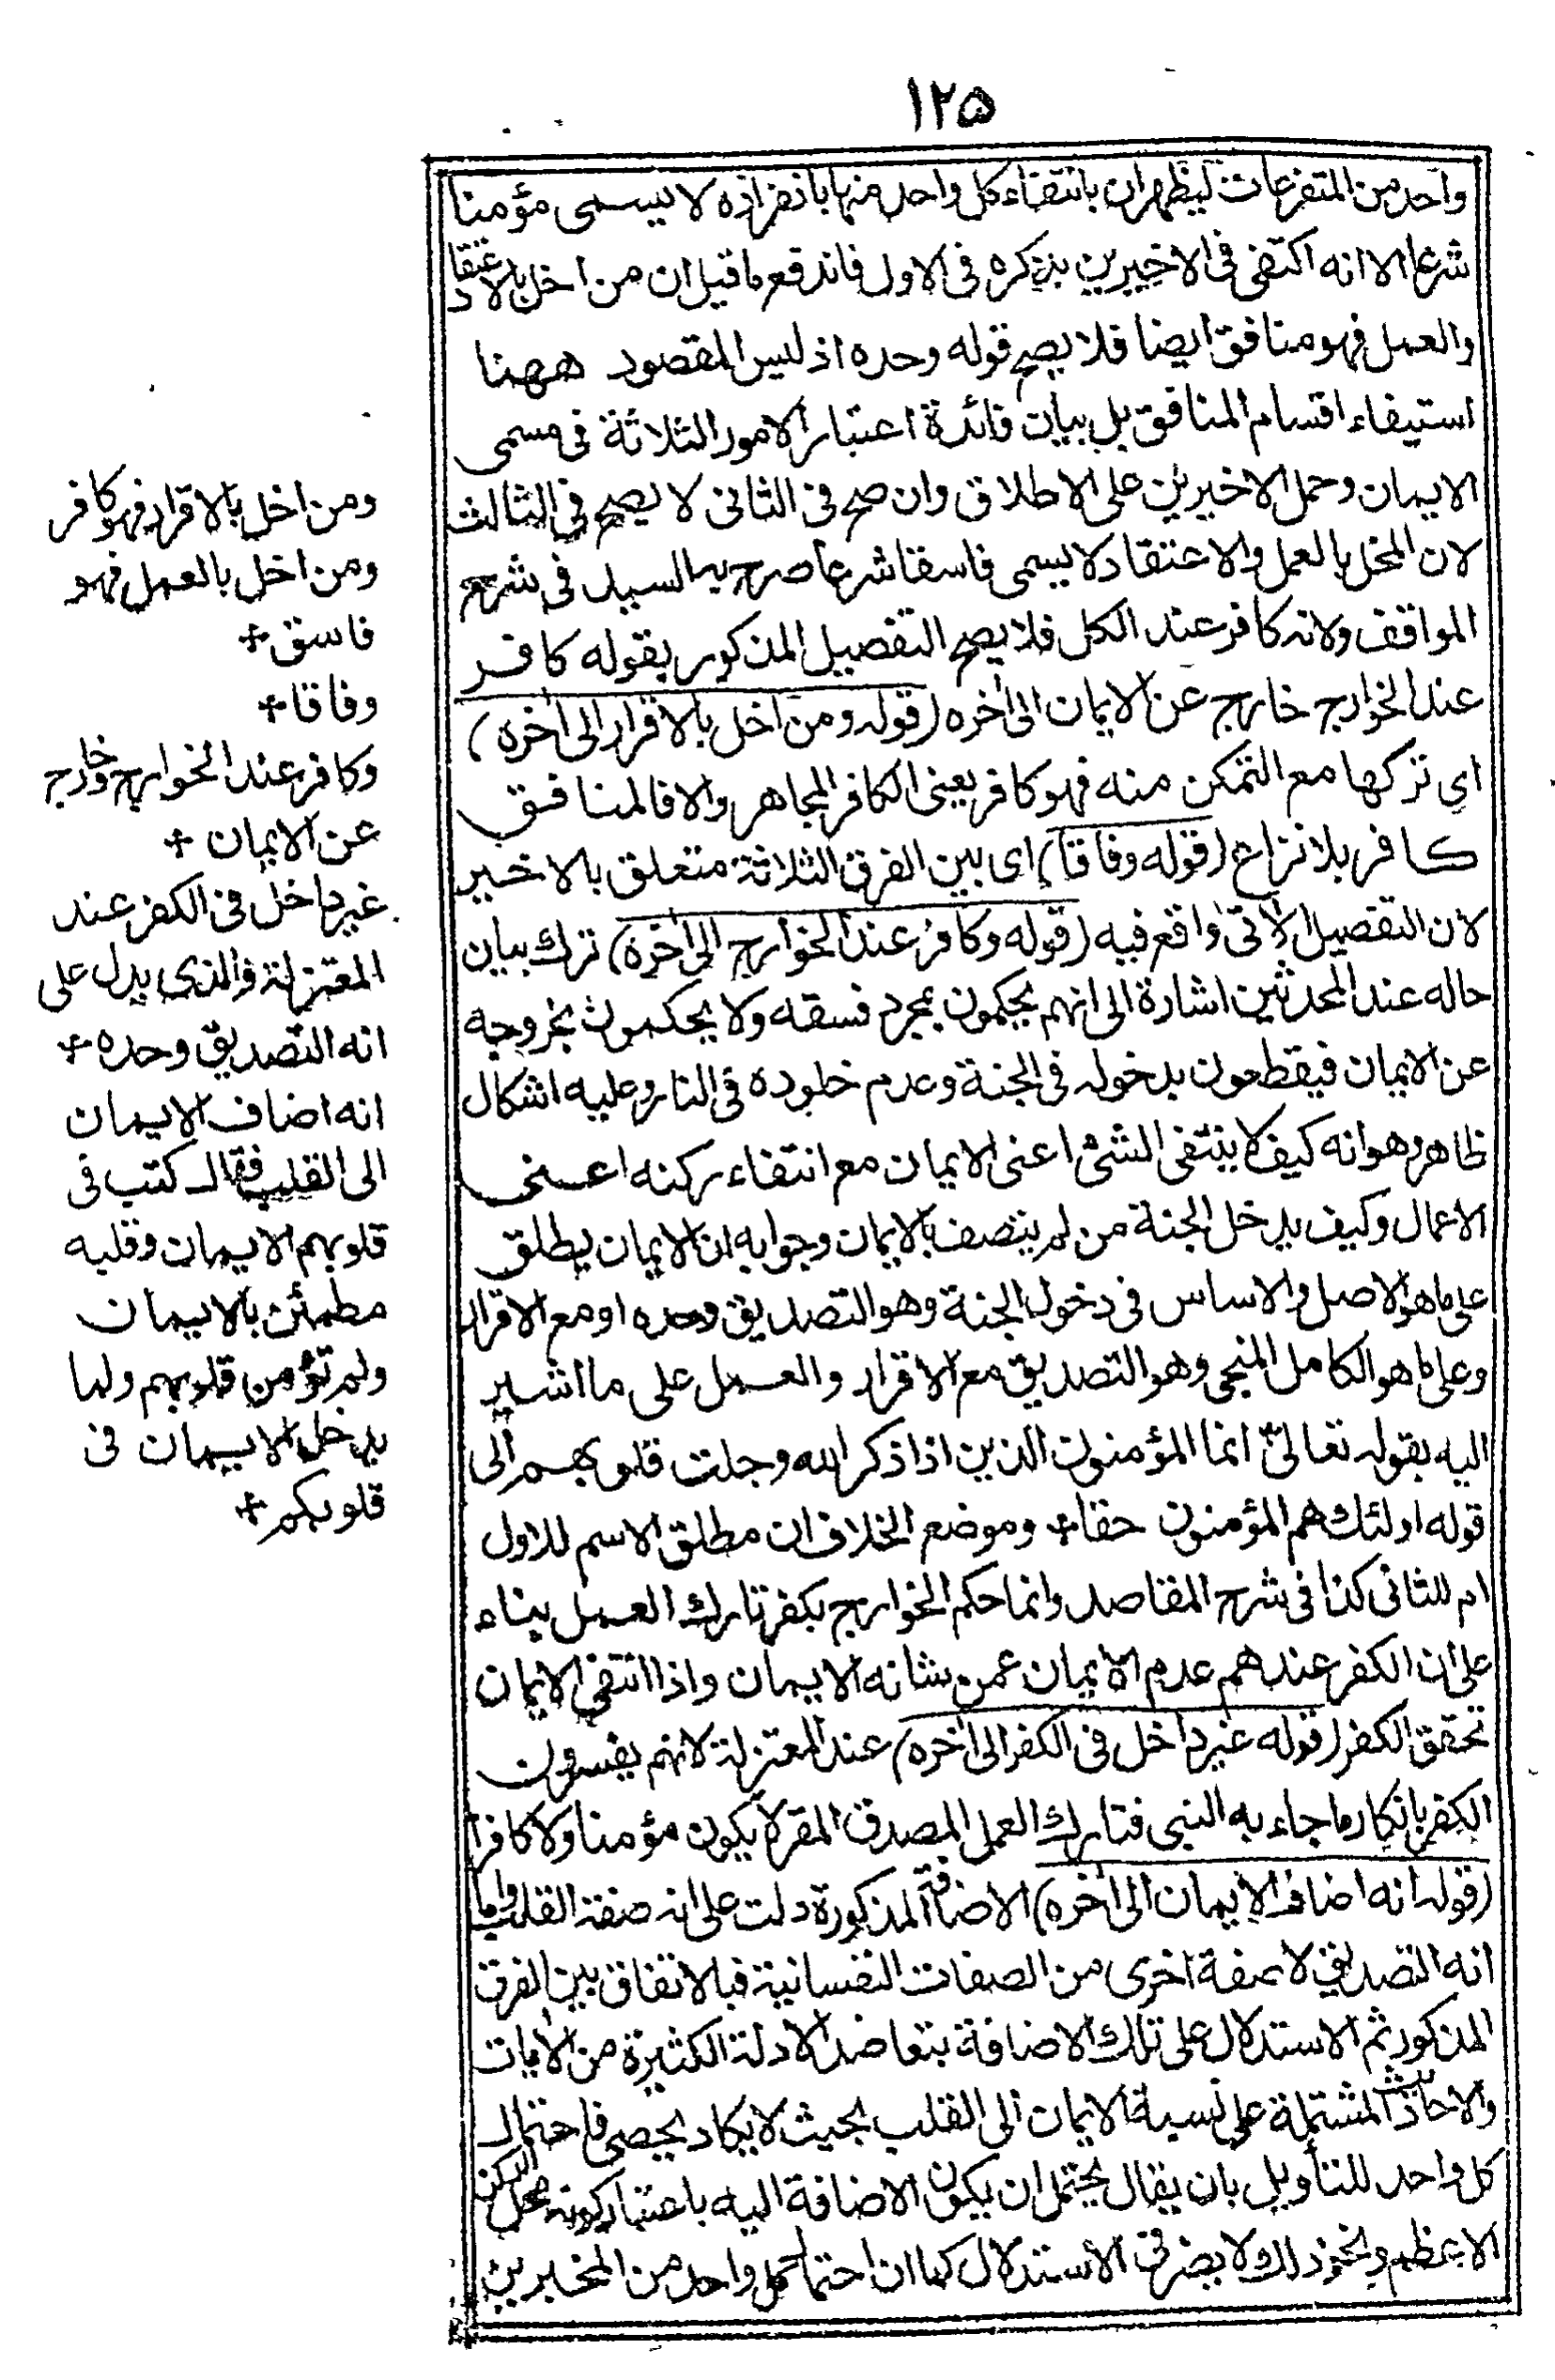 ١٢٥
واحد من المتفرعات ليظهر ان بانتفاء كل واحد منها بانفراده لا يسمى مؤمنا
شرعا الا انه اكتفى فى الاخيرين بذكره فى الاول فاندفع ما قيل ان من اخل بالاعتقاد
والعمل فهو منافق ايضا فلا يصح قوله وحده اذ ليس المقصود ههنا
استيفاء اقسام المنافق بل بيان فائدة اعتبار الامور الثلاثة فى مسمى
الايمان وحمل الاخيرين على الاطلاق وان صح فى الثانى لا يصح فى الثالث
لان المخل بالعمل والاعتقاد لا يسمى فاسقا شرعا صرح به السيد فى شرح
المواقف ولانه كافر عند الكل فلا يصح التفصيل المذكور بقوله كافر
عند الخوارج خارج عن الايمان الى اخره (قوله ومن اخل بالاقرار الى اخره)
اى تركها مع التمكن منه فهو كافر يعنى الكافر المجاهر والا فالمنافق
كافر بلا نزاع (قوله وفاقا) اى بين الفرق الثلاثة متعلق بالاخير
لان التفصيل الآتى واقع فيه (قوله وكافر عند الخوارج الى اخره) ترك بيان
حاله عند المحدثين اشارة الى انهم يحكمون بمجرد فسقه ولا يحكمون بخروجه
عن الايمان فيقطعون بدخوله فى الجنة وعدم خلوده فى النار وعليه اشكال
ظاهر وهو انه كيف لا ينتفى الشئ اعنى الايمان مع انتفاء ركنه اعنى
الاعمال وكيف يدخل الجنة من لم يتصف بالايمان وجوابه ان الايمان يطلق
على ما هو الاصل والاساس فى دخول الجنة وهو التصديق وحده او مع الاقرار
وعلى ما هو الكامل المنجى وهو التصديق مع الاقرار والعمل على ما اشير
اليه بقوله تعالى انما المؤمنون الذين اذا ذكر الله وجلت قلوبهم الى
قوله اولئك هم المؤمنون حقا+ وموضع الخلاف ان مطلق الاسم للاول
ام للثانى كذا فى شرح المقاصد وانما حكم الخوارج بكفر تارك العمل بناء
على ان الكفر عندهم عدم الايمان عمن شانه الايمان واذا انتفى الايمان
تحقق الكفر (قوله غير داخل فى الكفر الى اخره) عند المعتزلة لانهم يفسرون
الكفر بانكار ما جاء به النبى فتارك العمل المصدق المقر لا يكون مؤمنا ولا كافرا
(قوله انه اضاف الايمان الى اخره) الاضافة المذكورة دلت على انه صفة القلب واما
انه التصديق لا صفة اخرى من الصفات النفسانية فبالاتفاق بين الفرق
المذكور ثم الاستدلال على تلك الاضافة بتعاضد الادلة الكثيرة من الايات
والاحاديث المشتملة على نسبة الايمان الى القلب بحيث لا يكاد يحصى فاحتمال
كل واحد للتأويل بان يقال يحتمل ان يكون الاضافة اليه باعتبار كونه محل الركن
الاعظم ونحو ذلك لا يضر فى الاستدلال كما ان احتمال كل واحد من المخبرين
ومن اخل بالاقرار فهو كافر
ومن اخل بالعمل فهو
فاسق+
وفاقا+
وكافر عند الخوارج وخارج
عن الايمان +
غير داخل فى الكفر عند
المعتزلة والذى يدل على
انه التصديق وحده+
انه اضاف الايمان
الى القلب فقال كتب فى
قلوبهم الايمان وقلبه
مطمئن بالايمان
ولم تؤمن قلوبهم ولما
يدخل الايمان فى
قلوبكم+